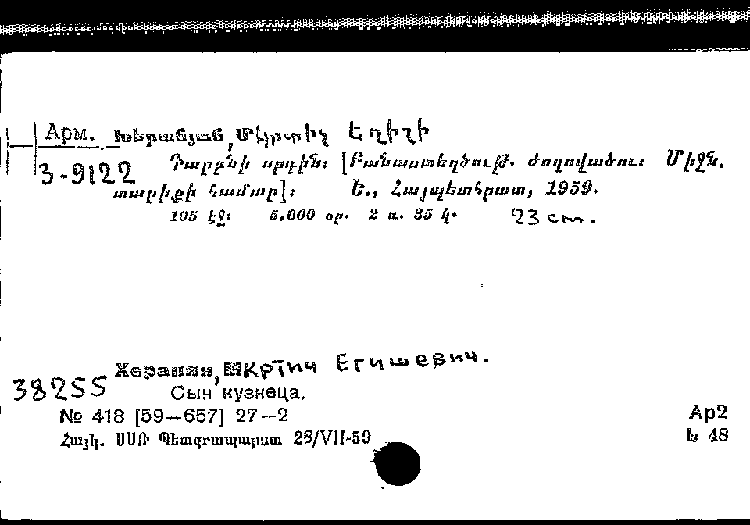 Арм. Խերանյան, Մկրտիչ Եղիշի
3-9122 Դարբնի որդին: [Բանաստեղծութ. ժողովածու: Միջն.
տարիքի համար]: Ե., Հայպետհրատ, 1959.
195 էջ: 5.000 օր. 2 ռ. 35 կ. 23 cm.
Херанян, Мкртич Егишевич.
38255 Сын кузнеца.
№ 418 [59—657] 27—2 Ар2
Հայկ. ՍՍՌ Պետգրապալատ 28/VII-59 Խ 48